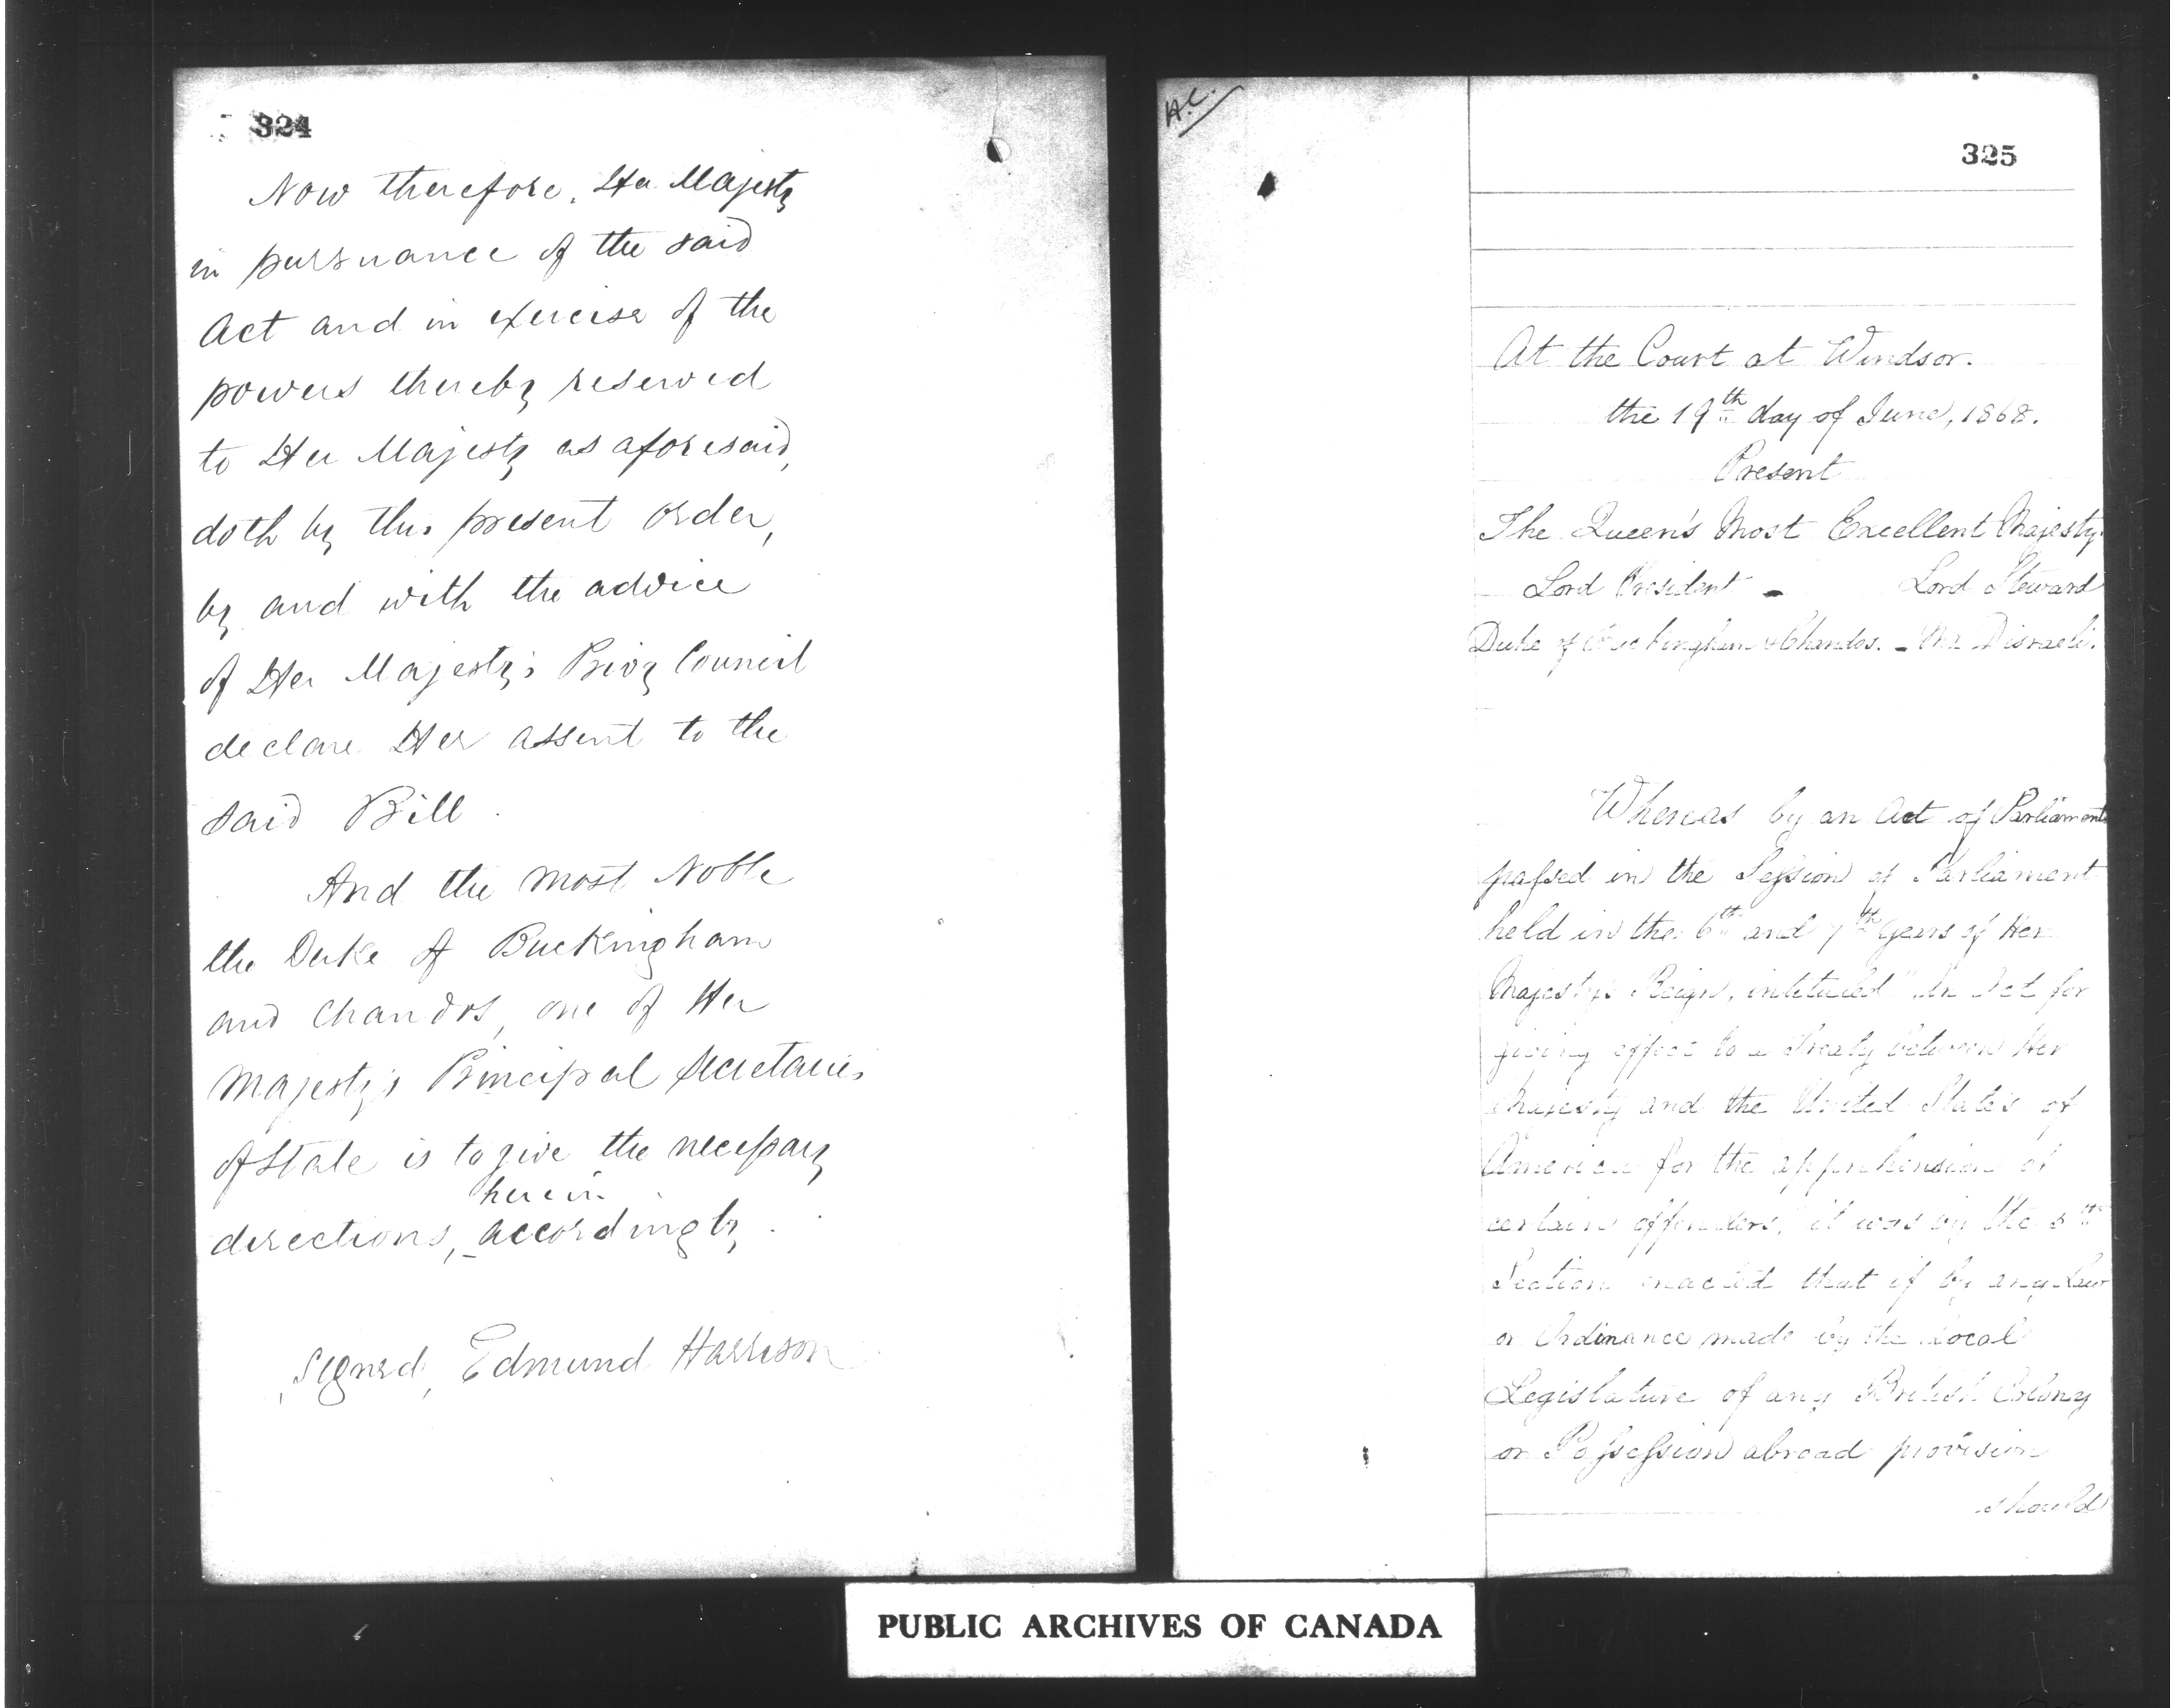 324
Now therefore, Her Majesty
in pursuance of the said
Act and in exercise of the
powers thereby reserved
to Her Majesty as aforesaid,
doth by this present order,
by and with the advice
of Her Majesty's Privy Council
declare Her assent to the
said Bill.
And the most Noble
the Duke of Buckingham
and Chandos, one of Her
Majesty's Principal Secretaries
of State is to give the necessary
herein
directions, accordingly.
Signed, Edmund Harrison
H.C.
325
At the Court at Windsor.
the 19th day of June, 1868.
Present
The Queen's Most Excellent Majesty.
Lord President - Lord Steward
Duke of Buckingham & Chandos. - Mr Disraeli.
Whereas by an Act of Parliament
passed in the Session of Parliament
held in the 6th and 7th years of Her
Majesty's Reign, intituled "An Act for
giving effect to a Treaty between Her
Majesty and the United States of
America for the apprehension of
certain offenders," it was by the 5th
Section enacted that if by any Law
or Ordinance made by the Local
Legislature of any British Colony
or Possession abroad provision
should
PUBLIC ARCHIVES OF CANADA